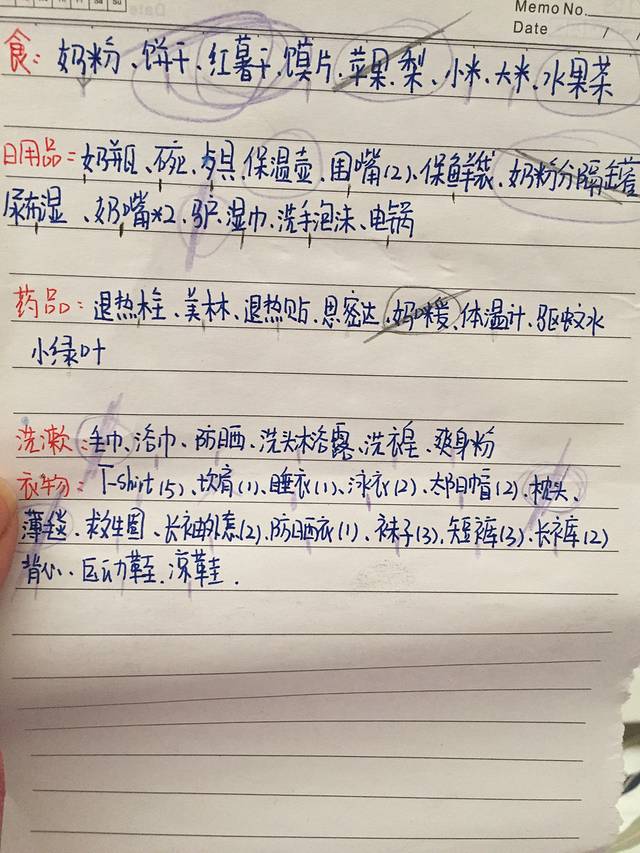 Memo No.
Date / /
食：奶粉、饼干、红薯干、馍片、苹果、梨、小米、大米、水果茶
日用品：奶瓶、碗、勺具、保温壶、围嘴(2)、保鲜袋、奶粉分隔
尿布湿、奶嘴*2、驴、湿巾、洗手泡沫、电锅
药品：退热栓、美林、退热贴、思密达、妈咪爱、体温计、驱蚊水
小绿叶
洗漱：毛巾、浴巾、防晒、洗头沐浴露、洗衣皂、爽身粉
衣物：T-shirt(5)、坎肩(1)、睡衣(1)、泳衣(2)、太阳帽(2)、枕头、
薄毯、救生圈、长袖外套(2)、防晒衣(1)、袜子(3)、短裤(3)、长裤(2)
背心、运动鞋、凉鞋.